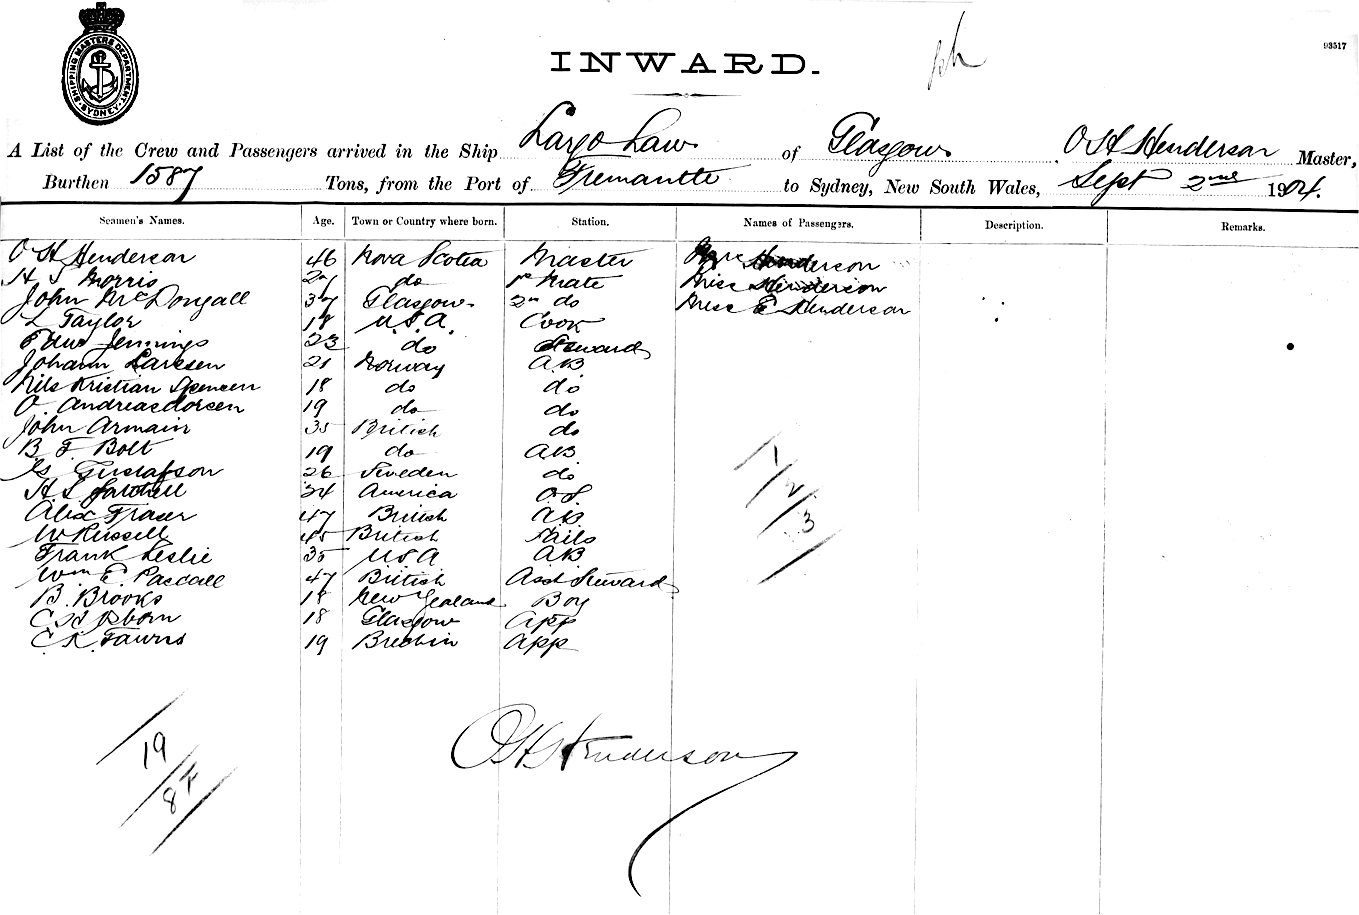 SHIPPING MASTERS DEPARTMENT SYDNEY
93517
INWARD.
A List of the Crew and Passengers arrived in the Ship Largo Law of Glasgow, O H Henderson Master,
Burthen 1587 Tons, from the Port of Fremantle to Sydney, New South Wales, Sept 2nd 1904.
Seamen's Names. Age. Town or Country where born. Station. Names of Passengers. Description. Remarks.
O H Henderson 46 Nova Scotia Master Henderson
H S Morris do Mate Miss Henderson
John McDougall 37 Glasgow 2n do Miss E Henderson
L Taylor 18 U.S.A. Cook
Edw Jennings 23 do Steward
Johann Larsen 21 Norway AB
Nils Kristian Spensen 18 do do
O. Andreasdorsen 19 do do
John Armain 35 British do
B F Bolt 19 do AB
Gustafson 26 Sweden do
H. S. 34 America O.S
Alex Fraser 47 British AB
W Russell 45 British Sails
Frank Leslie 35 U S A AB
Wm E. Pascall 47 British Asst Steward
B. Brooks 18 New Zealand Boy
C H Osborn 18 Glasgow App
C. K. Fawns 19 Brechin App
1/2/3
O H Henderson
19
8 F